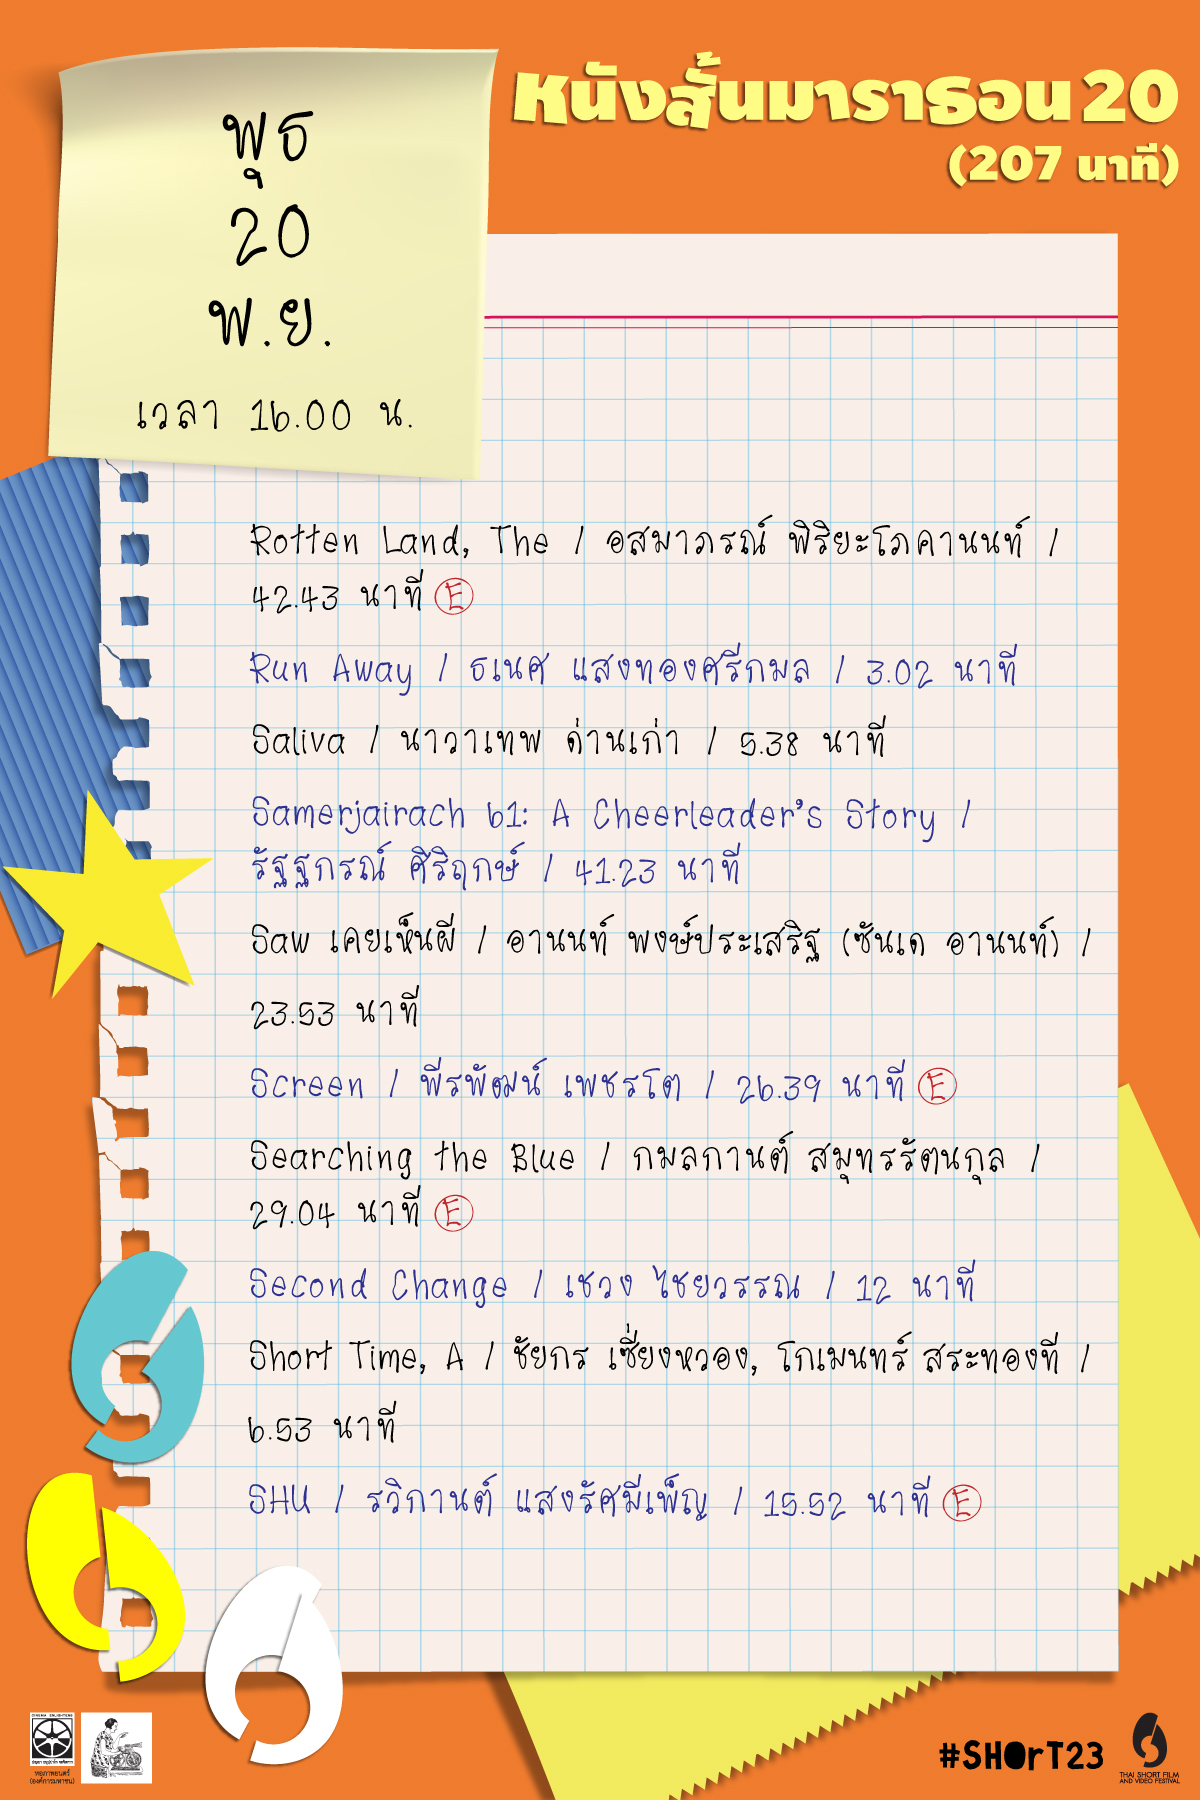 หนังสั้นมาราธอน 20
(207 นาที)
พุธ
20
พ.ย.
เวลา 16.00 น.
Rotten Land, The / อสมาภรณ์ พิริยะโภคานนท์ /
42.43 นาที E
Run Away / ธเนศ แสงทองศรีกมล / 3.02 นาที
Saliva / นาวาเทพ ด่านเก่า / 5.38 นาที
Samerjairach 61: A Cheerleader's Story /
รัฐฐกรณ์ ศิริฤกษ์ / 41.23 นาที
Saw เคยเห็นผี / อานนท์ พงษ์ประเสริฐ (ซันเด อานนท์) /
23.53 นาที
Screen / พีรพัฒน์ เพชรโต / 26.39 นาที E
Searching the Blue / กมลกานต์ สมุทรรัตนกุล /
29.04 นาที E
Second Change / เชวง ไชยวรรณ / 12 นาที
Short Time, A / ชัยกร เซี่ยงหวอง, โกเมนทร์ สระทองที /
6.53 นาที
SHU / รวิกานต์ แสงรัศมีเพ็ญ / 15.52 นาที E
หอภาพยนตร์
(องค์การมหาชน)
#SHOrT23
THAI SHORT FILM
AND VIDEO FESTIVAL